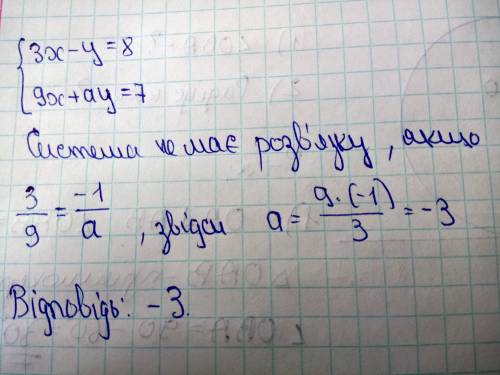 {3x-y=8
9x+ay=7
Система не має розв'язку, якщо
3/9 = -1/a, звідси a = 9·(-1)/3 = -3
Відповідь: -3.